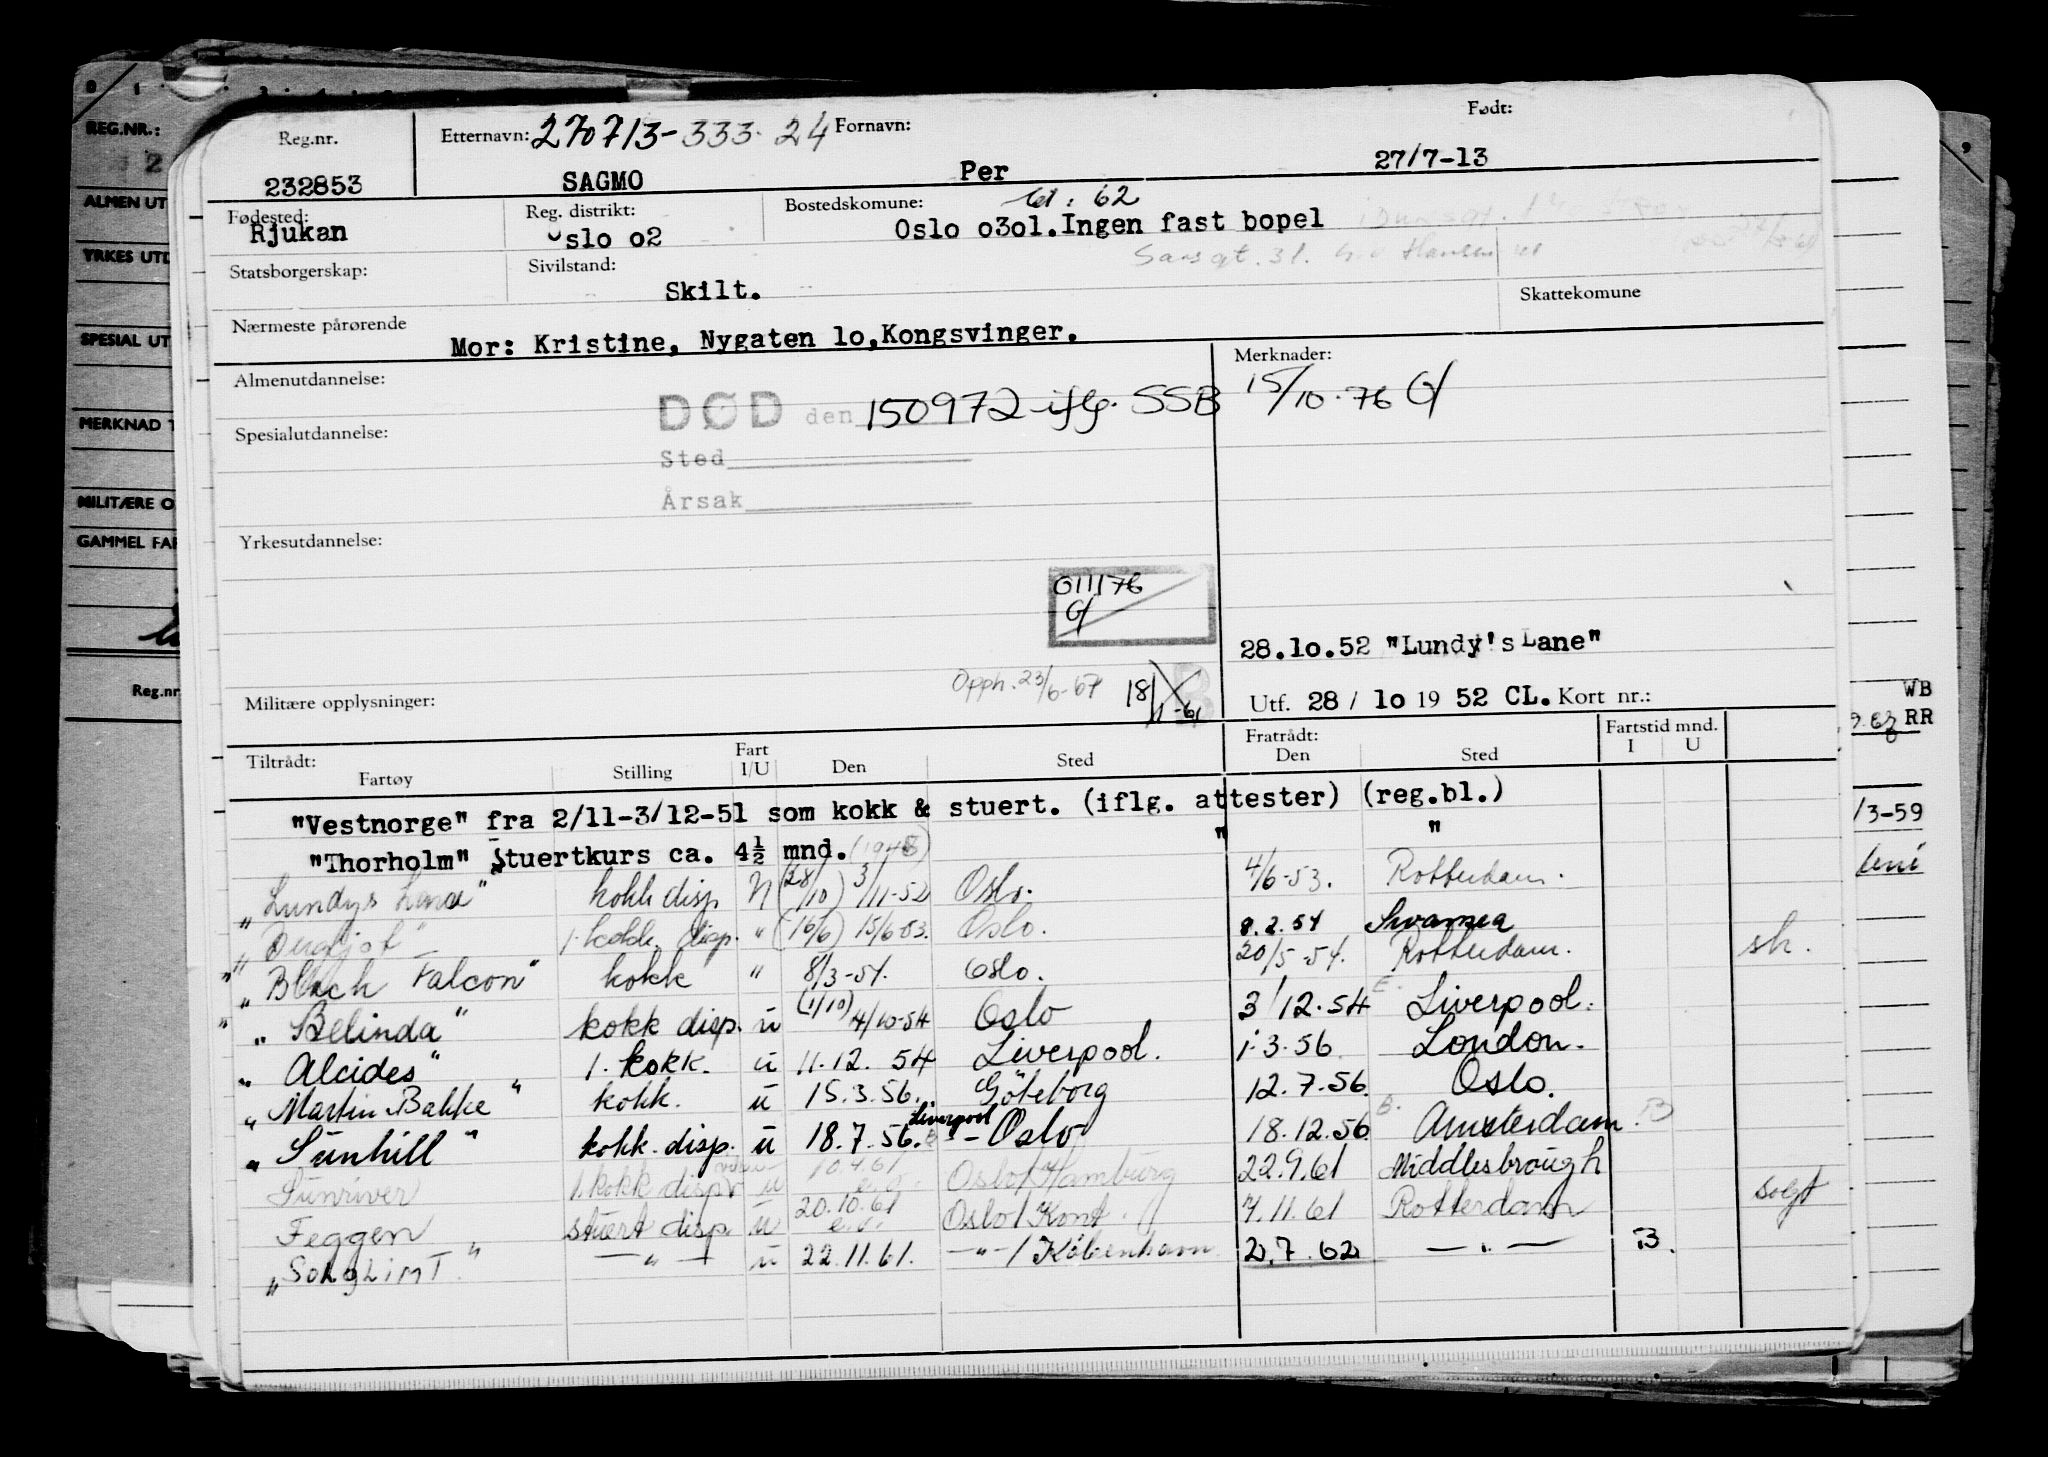 Reg.nr. Etternavn: 270713-333.24 Fornavn: Født:
232853 SAGMO Per 27/7-13
Fødested: Reg. distrikt: Bostedskomune: 62
Rjukan slo o2 Oslo o3o1.Ingen fast bopel
Statsborgerskap: Sivilstand: Sarsgt. 31. Hansen
Skilt. Skattekomune
Nærmeste pårørende
Mor: Kristine, Nygaten 1o,Kongsvinger.
Almenutdannelse: Merknader:
DØD den 150972 iflg. SSB 15/10.76
Spesialutdannelse:
Sted
Årsak
Yrkesutdannelse:
011176
28.1o.52 "Lundy's Lane"
Opph. 23/6-67 18/11-61
Militære opplysninger: Utf. 28 / 1o 19 52 CL. Kort nr.:
Tiltrådt: Fart Fratrådt: Fartstid mnd.
Fartøy Stilling I/U Den Sted Den Sted I U
"Vestnorge" fra 2/11-3/12-51 som kokk & stuert. (iflg. attester) (reg.bl.)
"Thorholm" Stuertkurs ca. 4½ mnd. " "
"Lundys Lane" kokk disp N (28/10) 3/11-52 Oslo. 4/6-53. Rotterdam.
1. kokk disp. " (16/6) 15/6-53. Oslo. 8.2.54 Swansea
"Black Falcon" kokk " 8/3-54. Oslo. 20/5-54. Rotterdam. sk.
"Belinda" kokk disp. u (1/10) 4/10-54 Oslo 3/12.54 Liverpool.
"Alcides" 1. kokk. u 11.12.54 Liverpool. 1.3.56 London.
"Martin Bakke" kokk. u 15.3.56. Göteborg 12.7.56. Oslo.
"Sunhill" kokk disp. u 18.7.56. Liverpool - Oslo 18.12.56. B. Amsterdam. B
Sunriver 1. kokk disp u 10.4.61 Oslo/Hamburg 22.9.61 Middlesbrough
Feggen stuert disp. u 20.10.61 e.o. Oslo/Kont. 7.11.61 Rotterdam solgt
"SOLGLIMT" —"— u 22.11.61. —"—/København 2.7.62 —"— B.
REG.NR.:
2
ALMEN UT
YRKES UTD
SPESIAL UT
MERKNAD T
MILITÆRE O
GAMMEL FAR
Reg.nr
WB
RR
/3-59